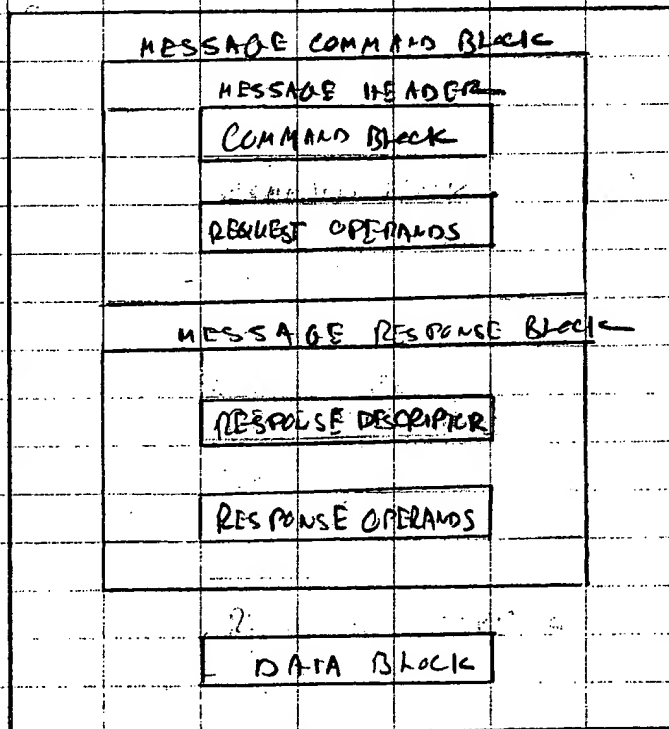 MESSAGE COMMAND BLOCK
MESSAGE HEADER
COMMAND BLOCK
REQUEST OPERANDS
MESSAGE RESPONSE BLOCK
RESPONSE DESCRIPTOR
RESPONSE OPERANDS
DATA BLOCK